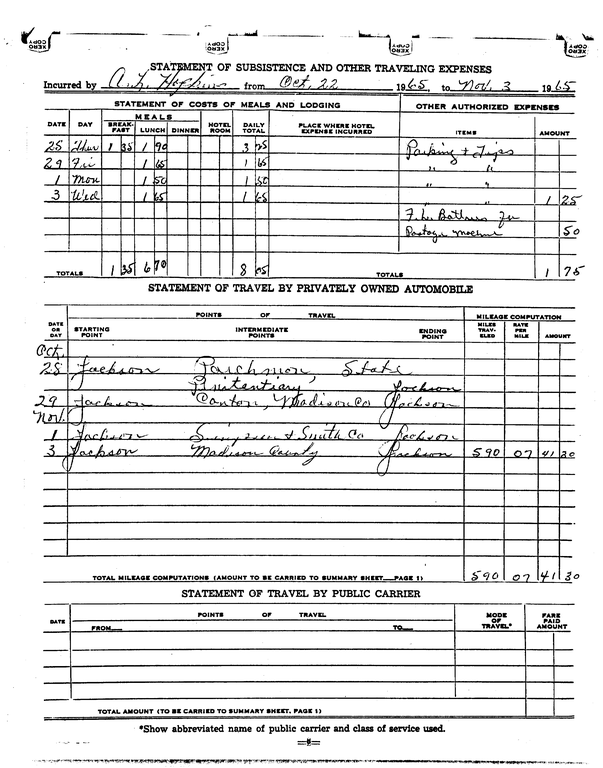 XEROX COPY XEROX COPY XEROX COPY XEROX COPY
STATEMENT OF SUBSISTENCE AND OTHER TRAVELING EXPENSES
Incurred by A. L. Hopkins from Oct. 22 1965 to Nov. 3 1965
STATEMENT OF COSTS OF MEALS AND LODGING OTHER AUTHORIZED EXPENSES
DATE DAY MEALS BREAK-FAST LUNCH DINNER HOTEL ROOM DAILY TOTAL PLACE WHERE HOTEL EXPENSE INCURRED ITEMS AMOUNT
25 Thur 1 35 1 90 3 25 Parking + Tips
29 Fri 1 65 1 65 " "
1 Mon 1 50 1 50 " "
3 Wed 1 65 1 65 " " 1 25
F. L. Jr
Postage 50
TOTALS 1 35 6 70 8 05 TOTALS 1 75
STATEMENT OF TRAVEL BY PRIVATELY OWNED AUTOMOBILE
POINTS OF TRAVEL MILEAGE COMPUTATION
DATE OR DAY STARTING POINT INTERMEDIATE POINTS ENDING POINT MILES TRAV-ELED RATE PER MILE AMOUNT
Oct.
28 Jackson Parchman, State
Penitentiary, Jackson
29 Jackson Canton, Madison Co Jackson
Nov.
1 Jackson Simpson & Smith Co Jackson
3 Jackson Madison County Jackson 590 07 41 30
TOTAL MILEAGE COMPUTATIONS (AMOUNT TO BE CARRIED TO SUMMARY SHEET—PAGE 1) 590 07 41 30
STATEMENT OF TRAVEL BY PUBLIC CARRIER
DATE POINTS OF TRAVEL MODE OF TRAVEL* FARE PAID AMOUNT
FROM TO
TOTAL AMOUNT (TO BE CARRIED TO SUMMARY SHEET, PAGE 1)
*Show abbreviated name of public carrier and class of service used.